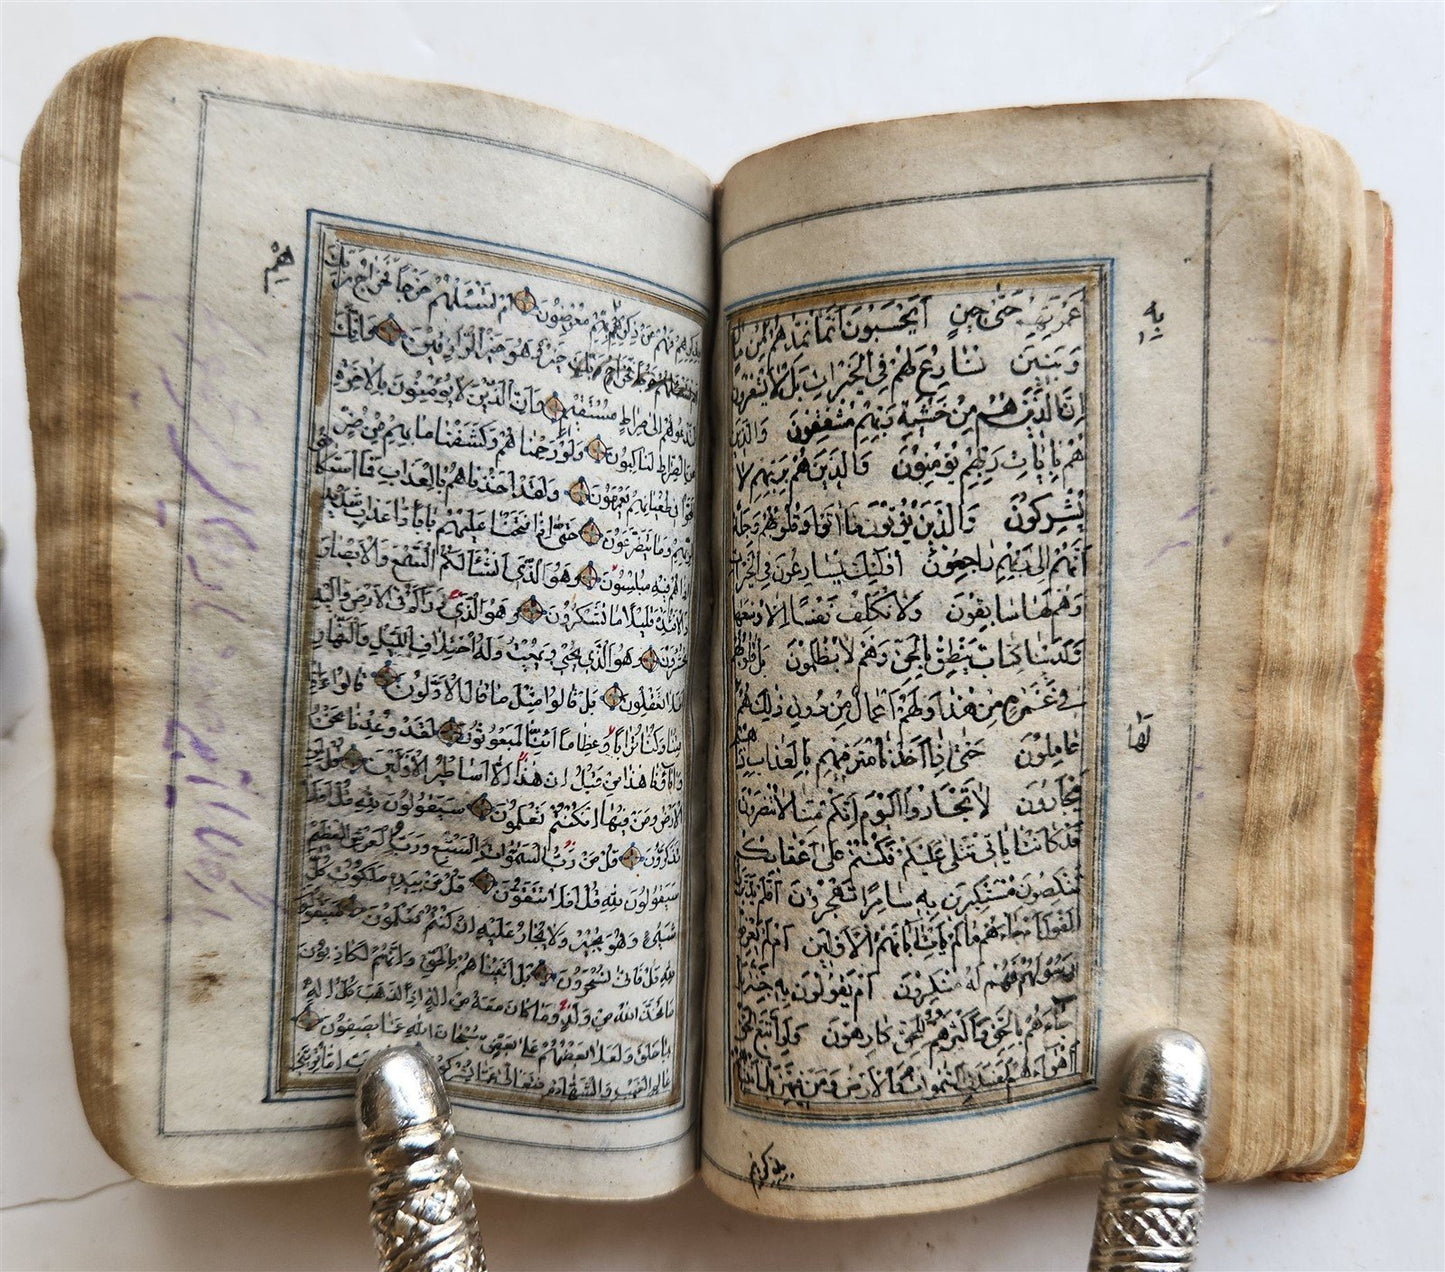 غمرتهم حتى حين ايحسبون انما نمدهم من مال
وبنين نسارع لهم في الخيرات بل لا يشعرون
ان الذين هم من خشية ربهم مشفقون والذين
هم بايات ربهم يؤمنون والذين هم بربهم لا
يشركون والذين يؤتون ما اتوا وقلوبهم وجلة
انهم الى ربهم راجعون اولئك يسارعون في الخيرات
وهم لها سابقون ولا نكلف نفسا الا وسعها
ولدينا كتاب ينطق بالحق وهم لا يظلمون بل قلوبهم
في غمرة من هذا ولهم اعمال من دون ذلك هم
عاملون حتى اذا اخذنا مترفيهم بالعذاب اذا
يجارون لا تجاروا اليوم انكم منا لا تنصرون
قد كانت اياتي تتلى عليكم فكنتم على اعقابكم
تنكصون مستكبرين به سامرا تهجرون افلم يدبروا
القول ام جاءهم ما لم يات اباءهم الاولين ام لم يعرفوا
رسولهم فهم له منكرون ام يقولون به جنة بل
جاءهم بالحق واكثرهم للحق كارهون ولو اتبع الحق
اهواءهم لفسدت السموات والارض ومن فيهن بل اتيناهم
به
لها
بذكرهم
هم
بذكرهم فهم عن ذكرهم معرضون ام تسئلهم خرجا فخراج ربك
خير وهو خير الرازقين وانك
لتدعوهم الى صراط مستقيم وان الذين لا يؤمنون بالاخرة
عن الصراط لناكبون ولو رحمناهم وكشفنا ما بهم من ضر
للجوا في طغيانهم يعمهون ولقد اخذناهم بالعذاب فما استكا
لربهم وما يتضرعون حتى اذا فتحنا عليهم بابا ذا عذاب شديد
اذا هم فيه مبلسون وهو الذي انشا لكم السمع والابصار
والافئدة قليلا ما تشكرون وهو الذي ذراكم في الارض واليه
تحشرون وهو الذي يحيي ويميت وله اختلاف الليل والنهار
افلا تعقلون بل قالوا مثل ما قال الاولون قالوا ءاذا
متنا وكنا ترابا وعظاما ائنا لمبعوثون لقد وعدنا نحن
واباؤنا هذا من قبل ان هذا الا اساطير الاولين قل لمن
الارض ومن فيها ان كنتم تعلمون سيقولون لله قل افلا
تذكرون قل من رب السموات السبع ورب العرش العظيم
سيقولون لله قل افلا تتقون قل من بيده ملكوت كل
شيء وهو يجير ولا يجار عليه ان كنتم تعلمون سيقولون
لله قل فانى تسحرون بل اتيناهم بالحق وانهم لكاذبون
ما اتخذ الله من ولد وما كان معه من اله اذا لذهب كل اله
بما خلق ولعلا بعضهم على بعض سبحان الله عما يصفون
عالم الغيب والشهادة فتعالى عما يشركون رب اما تريني